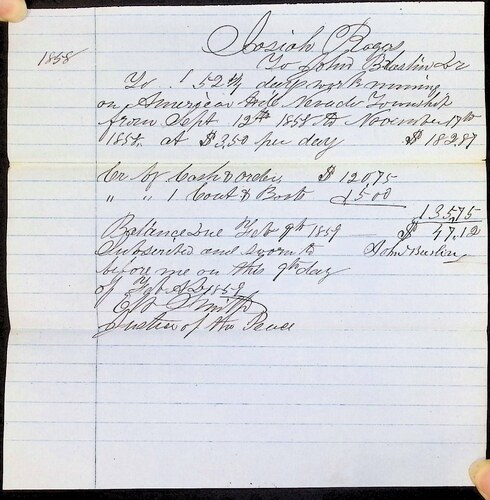 1858
Josiah Rogers
To John Baslin Dr
To 52 1/4 days work mining
on American Hill Nevada Township
from Sept 12th 1858 to November 17th
1858. at $3,50 per day $182,87
Cr By Cash & Orders $120,75
" " 1 Coat & Boots 15,00
135,75
Balance Due Feb 9th 1859 $47,12
Subscribed and sworn to John Baslin
before me on this 9th day
of Feb AD 1859
Smith
Justice of the Peace